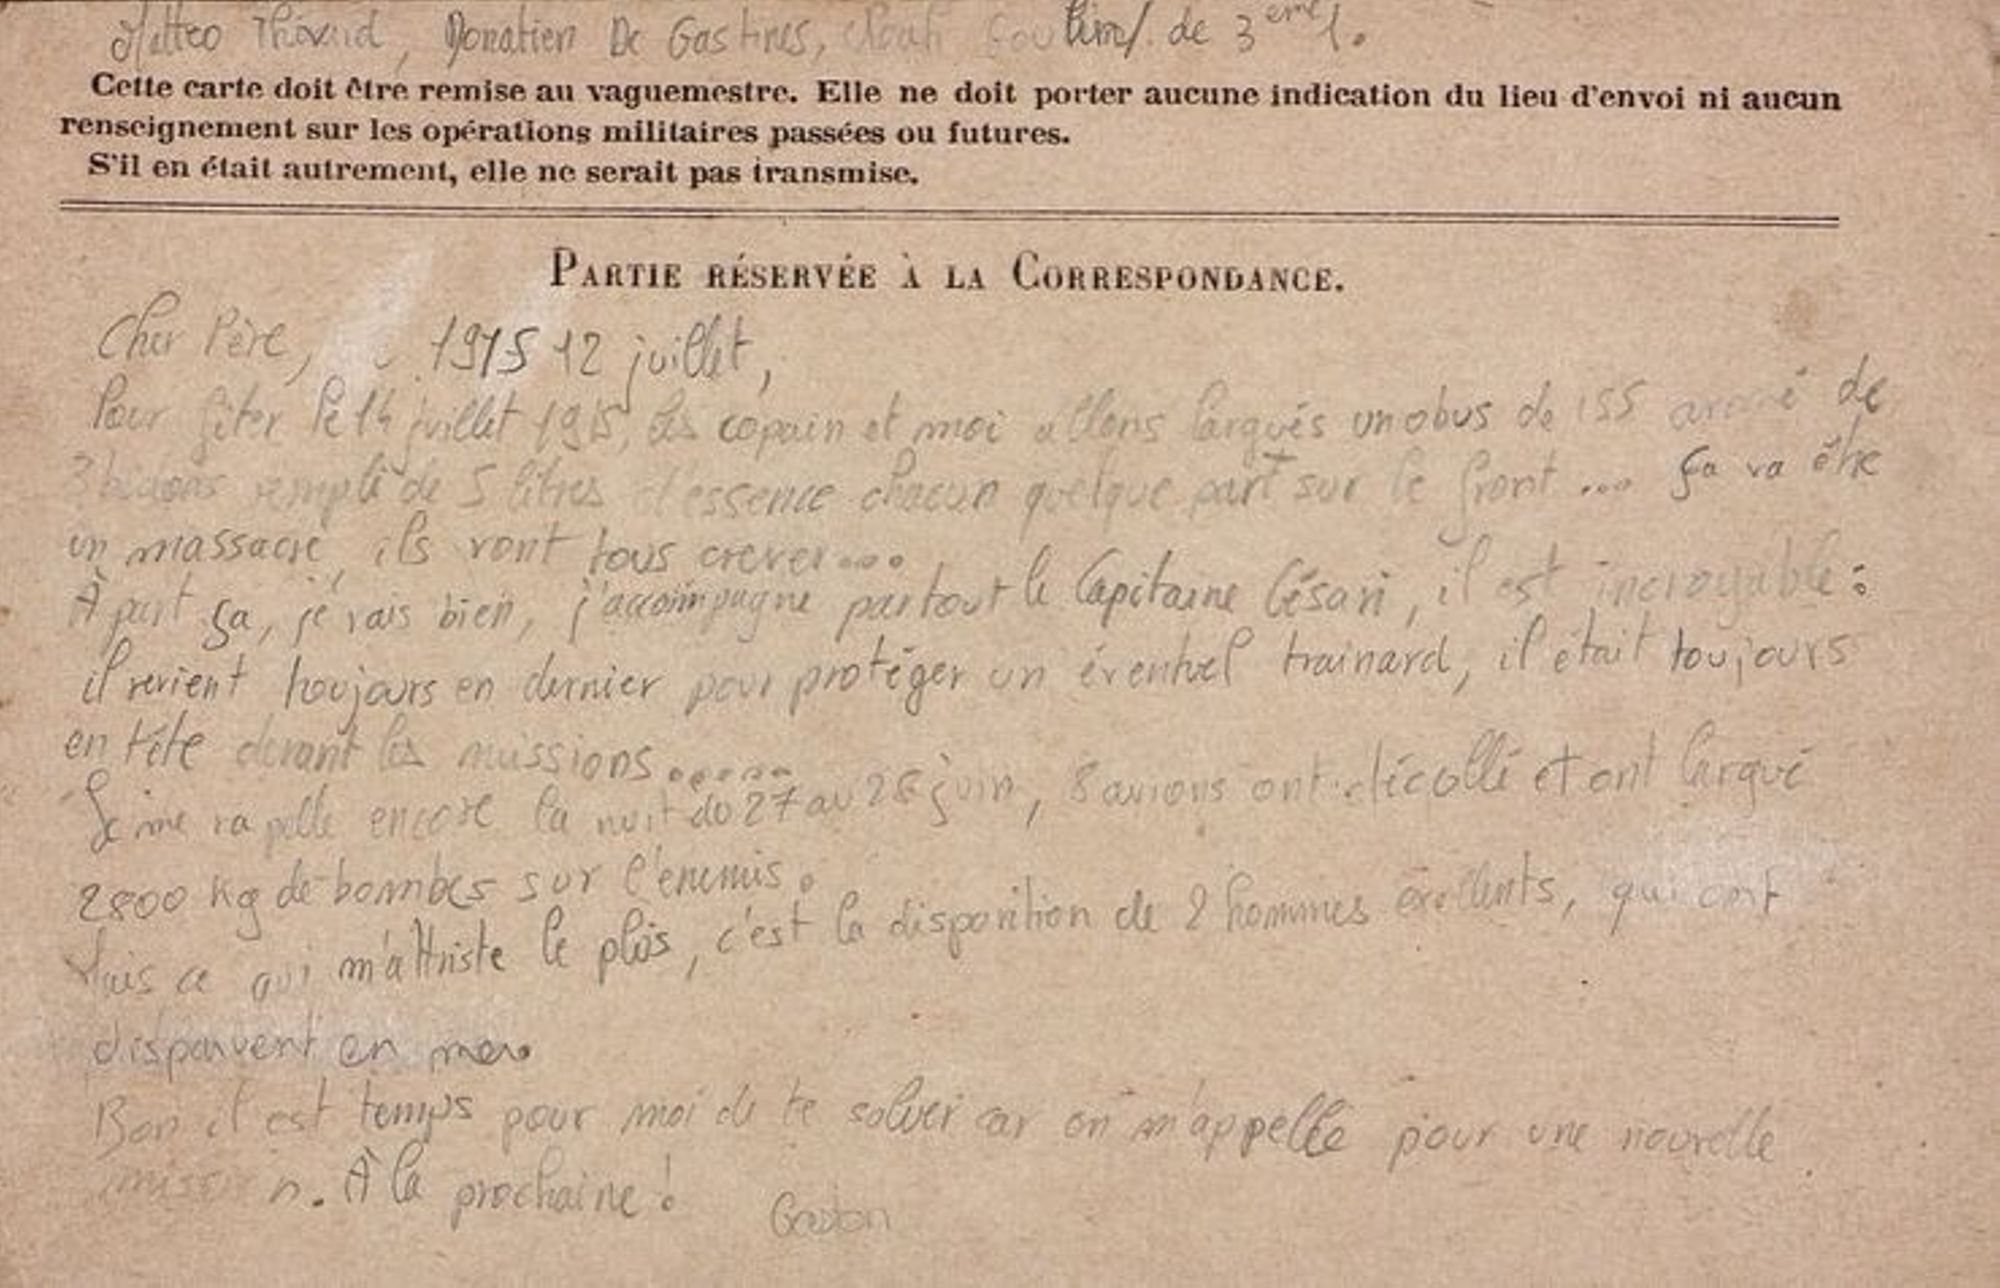 Matteo Thévard, Donatien De Gastines, de 3ème 1.
Cette carte doit être remise au vaguemestre. Elle ne doit porter aucune indication du lieu d'envoi ni aucun
renseignement sur les opérations militaires passées ou futures.
S'il en était autrement, elle ne serait pas transmise.
PARTIE RÉSERVÉE À LA CORRESPONDANCE.
Cher Père, 1915 12 juillet,
Pour fêter le 14 juillet 1915, les copain et moi allons largués un obus de 155 de
3 bidons rempli de 5 litres d'essence chacun quelque part sur le front ... ça va être
un massacre, ils vont tous crever...
À part ça, je vais bien, j'accompagne partout le Capitaine Césari, il est incroyable :
il revient toujours en dernier pour protéger un éventuel trainard, il était toujours
en tête devant les missions......
Je me rapelle encore la nuit du 27 au 28 juin, 8 avions ont décollé et ont largué
2800 kg de bombes sur l'enemis.
Mais ce qui m'attriste le plus, c'est la disparition de 2 hommes exellents, qui ont
disparurent en mer.
Bon il est temps pour moi de te saluer car on m'appelle pour une nouvelle
mission. À la prochaine !
Gaston